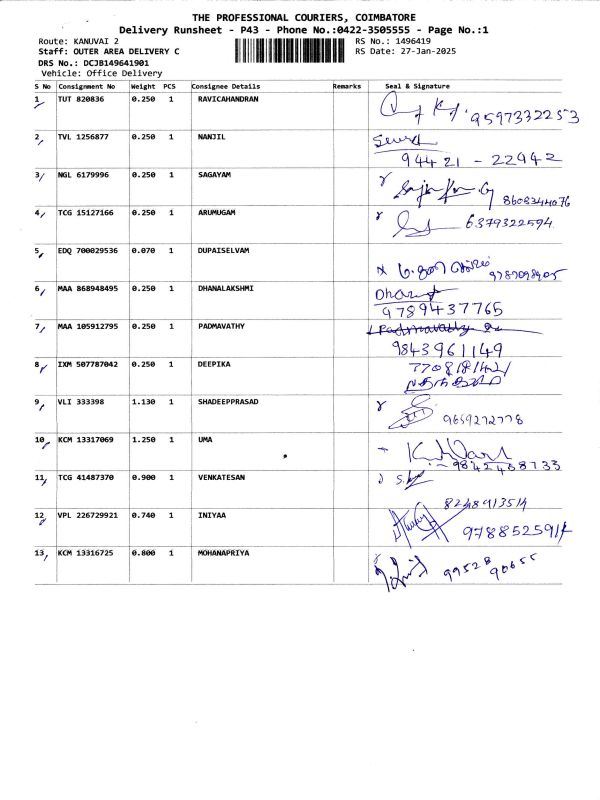 THE PROFESSIONAL COURIERS, COIMBATORE
Delivery Runsheet - P43 - Phone No.:0422-3505555 - Page No.:1
Route: KANUVAI 2 RS No.: 1496419
Staff: OUTER AREA DELIVERY C RS Date: 27-Jan-2025
DRS No.: DCJB149641901
Vehicle: Office Delivery
S No Consignment No Weight PCS Consignee Details Remarks Seal & Signature
1 TUT 820836 0.250 1 RAVICAHANDRAN 9597332253
2 TVL 1256877 0.250 1 NANJIL
94421 - 22942
3 NGL 6179996 0.250 1 SAGAYAM
8608344076
4 TCG 15127166 0.250 1 ARUMUGAM 6379322594
5 EDQ 700029536 0.070 1 DUPAISELVAM
6 MAA 868948495 0.250 1 DHANALAKSHMI
9789437765
7 MAA 105912795 0.250 1 PADMAVATHY Padmavathy
9843961149
8 IXM 507787042 0.250 1 DEEPIKA
9 VLI 333398 1.130 1 SHADEEPPRASAD
9659272778
10 KCM 13317069 1.250 1 UMA
11 TCG 41487370 0.900 1 VENKATESAN
8248913514
12 VPL 226729921 0.740 1 INIYAA
9788525914
13 KCM 13316725 0.800 1 MOHANAPRIYA
99528 90655